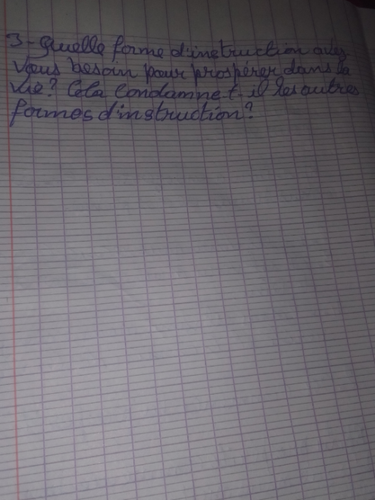 3- Quelle forme d'instruction avez
vous besoin pour prospérer dans la
vie? Cela Condamne t-il les autres
formes d'instruction?